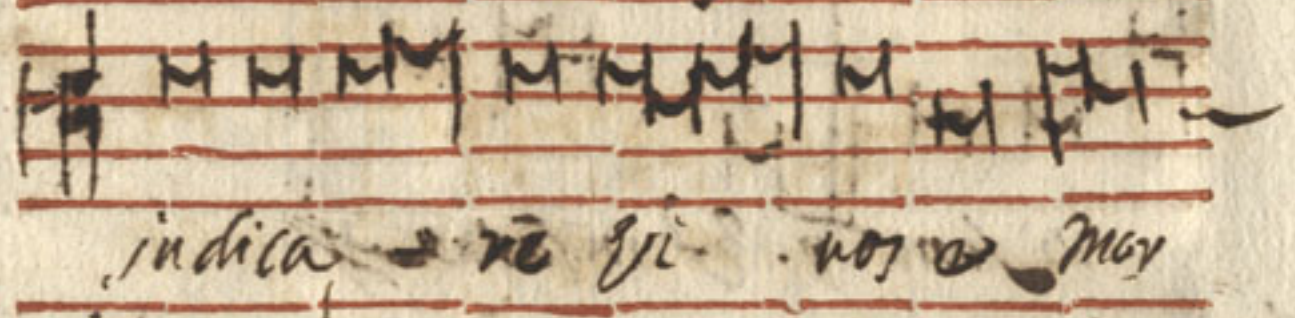 iudica - re vi vos e mor